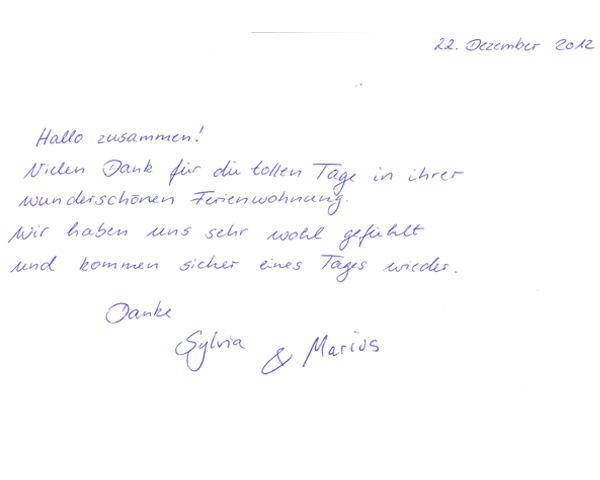 22. Dezember 2012
Hallo zusammen!
Vielen Dank für die tollen Tage in ihrer
wunderschönen Ferienwohnung.
Wir haben uns sehr wohl gefühlt
und kommen sicher eines Tages wieder.
Danke
Sylvia & Marius